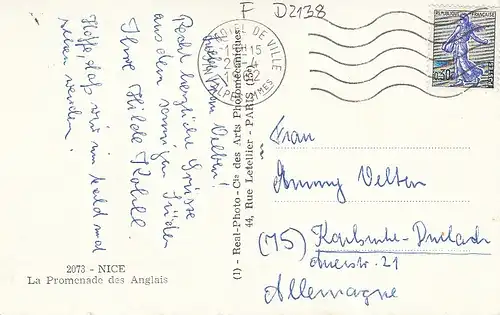 F D2138
Liebe Frau Velten!
Recht herzliche Grüsse
aus dem sonnigen Süden
Ihre Hilde Kohll.
Hoffe, daß wir uns bald mal
sehen werden!
2073 - NICE
La Promenade des Anglais
(1) - Real-Photo - Cie des Arts Photomécaniques
44, Rue Letellier - PARIS (15e)
HOTEL DE VILLE
ALPES MMES
0,30
Frau
Velten
(75) Karlsruhe-Durlach
Auerstr. 21
Allemagne